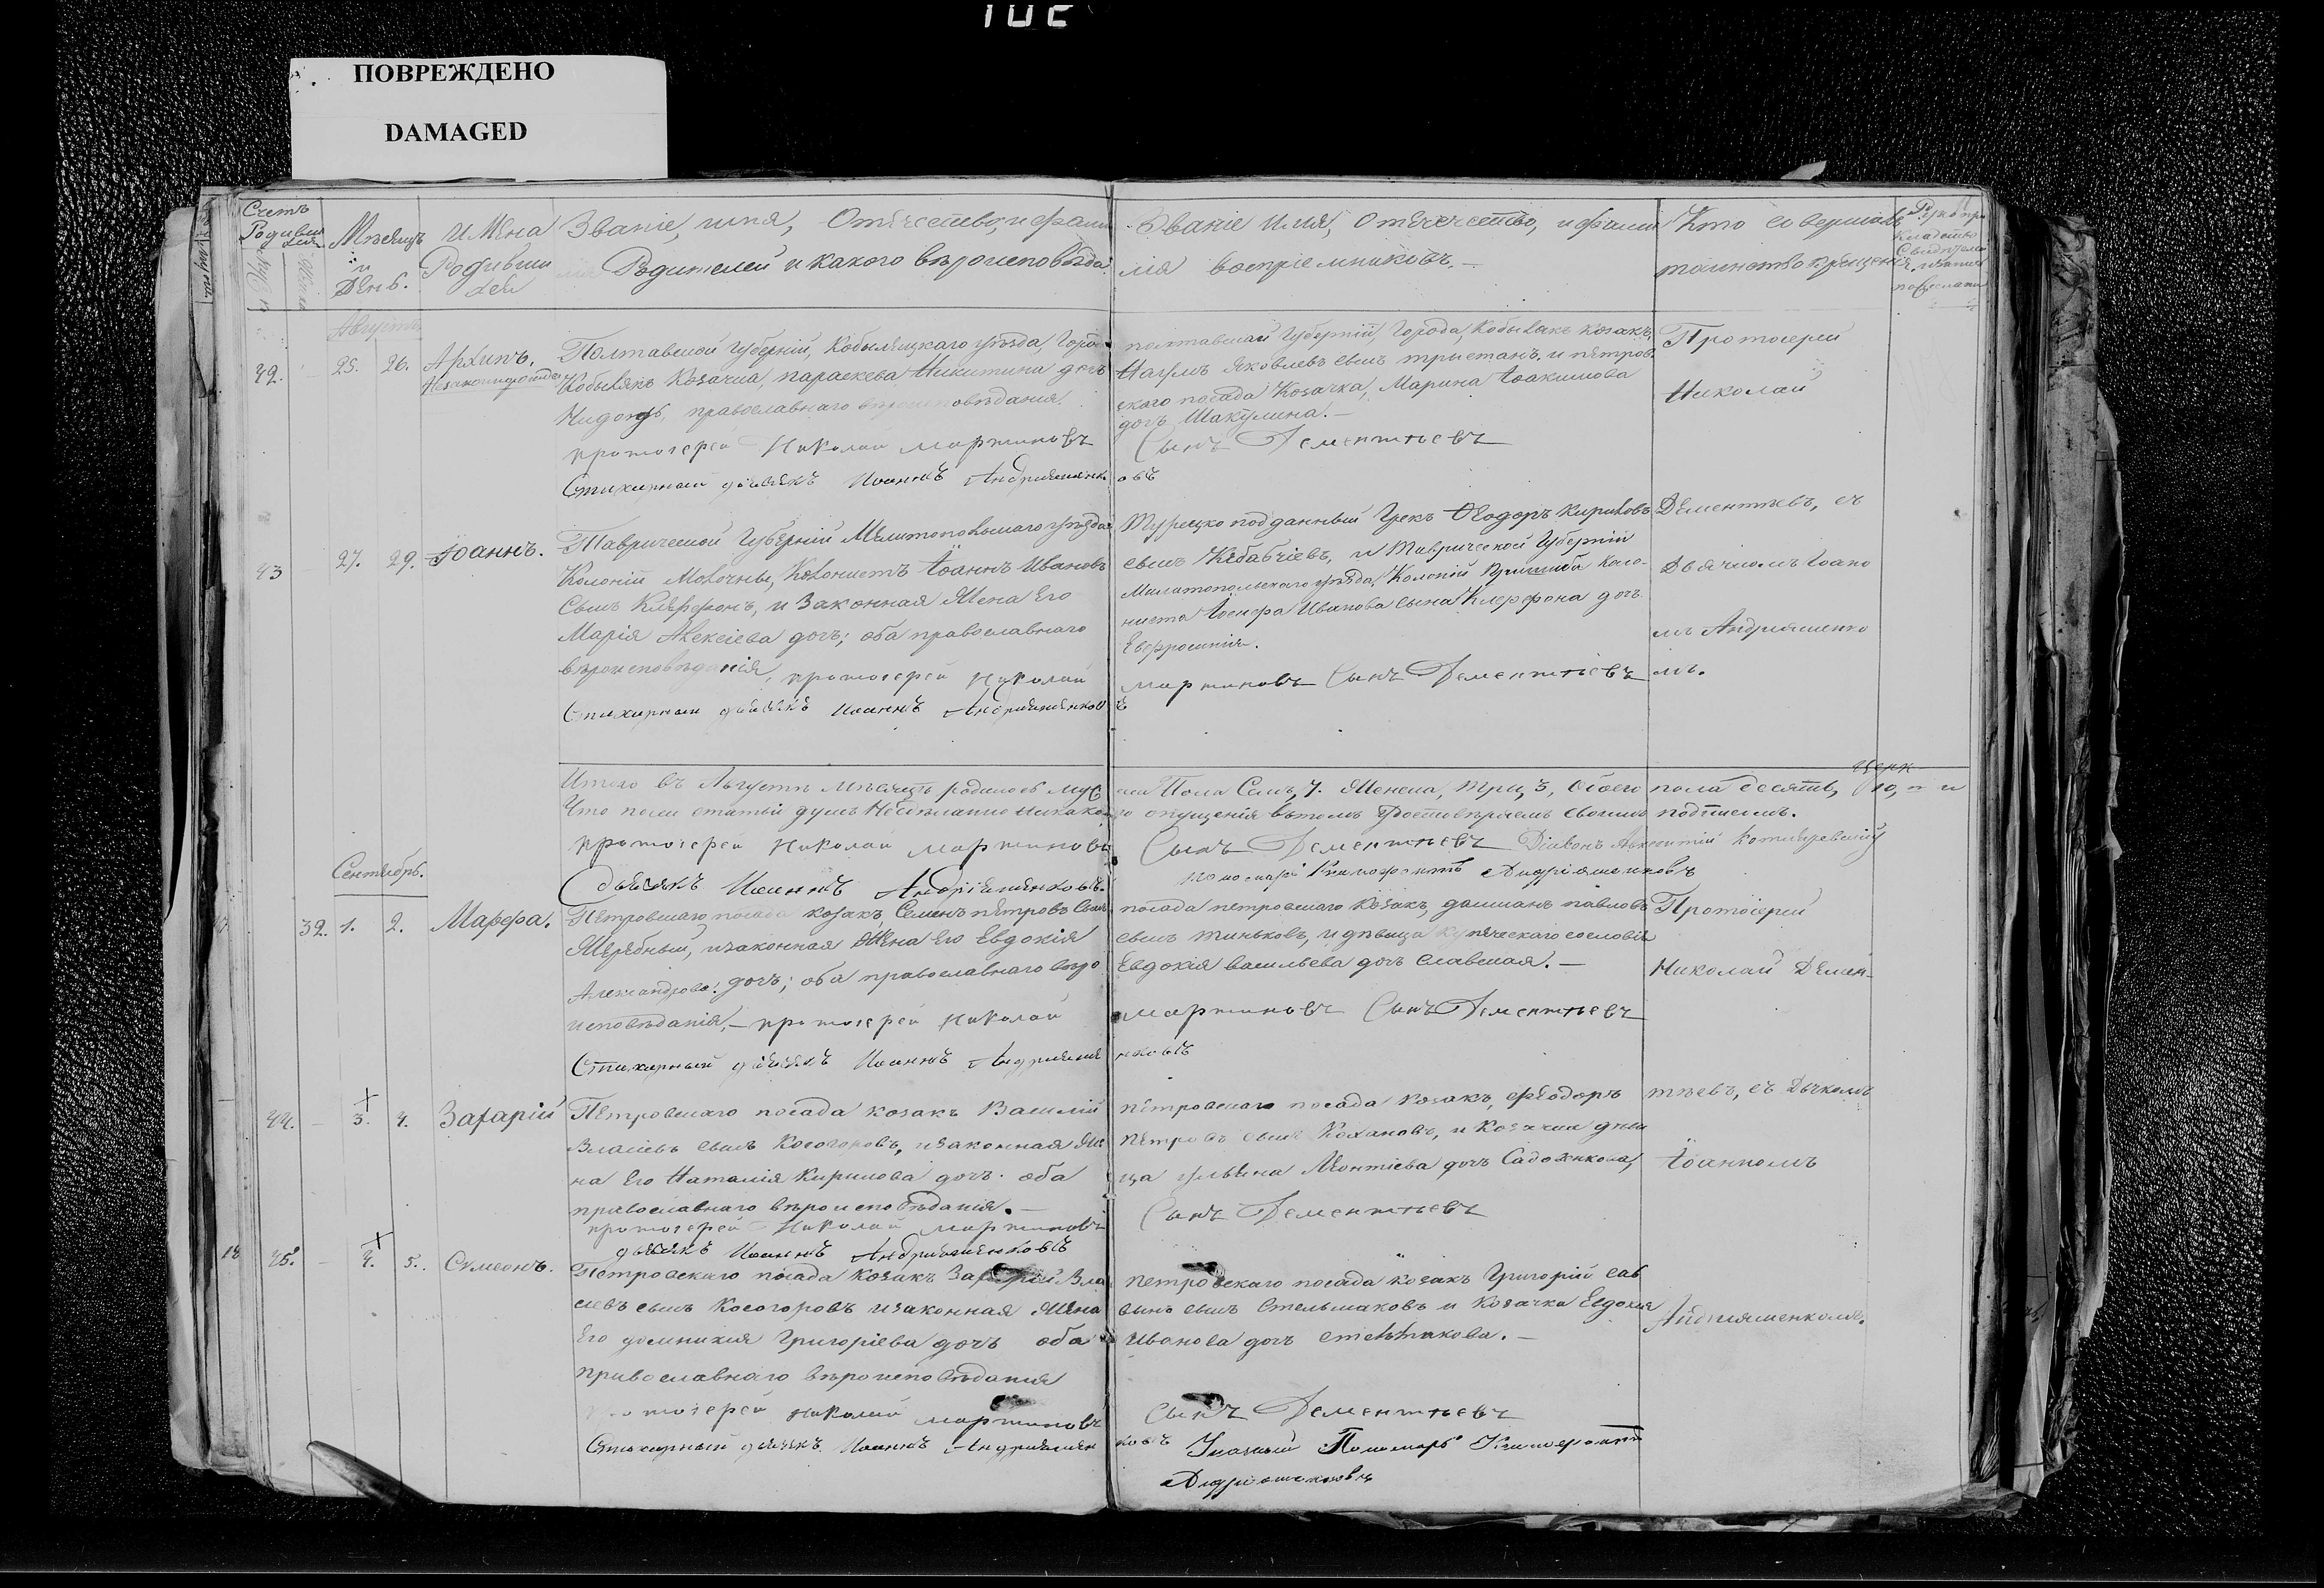 ПОВРЕЖДЕНО
DAMAGED
Счетъ
Родивши
Мѣсяцъ
и
День.
имена
Родивши
хся
Званіе, имя, Отечество, и фами
лія Родителей и какого вѣроисповѣда
Званіе имя, отечечество, и фами
лія воспріемниковъ.
Кто совершалъ
таинство крещенія
Августъ
42. 25. 26. Архипъ.
Полтавской губерніи, Кобыляцкаго уѣзда, Горо
Кобылякъ Козачка, параскева Никитина дочъ
православнаго вѣроисповѣданія.
протоіерей Николай Мартиновъ
Стихарный дьячекъ Иоаннъ Андріяшенко
полтавской губерніи, города, Кобылякъ козакъ
Наумъ Яковлевъ сынъ тристанъ. и петров
скаго посада Козачка, Марина Іоакимова
дочъ Шакулина.
Сынъ Дементьевъ
овъ
Протоіерей
Николай
43 27. 29. Іоаннъ.
Таврической Губерніи Мелитопольскаго уѣзда
Колоніи Молочны, Колонистъ Іоаннъ Ивановъ
Сынъ Клерфонъ, и Законная Жена Его
Марія Алексіева дочъ; оба православнаго
вѣроисповѣданія, протоіерей Николай
Стихарный дьячекъ Иоаннъ Андріяшенков
Турецко подданный Грекъ Ѳеодоръ Кириловъ
сынъ Кебабчіевъ, и Таврической Губерніи
Милитопольскаго уѣзда, Колоніи Пришиба Коло-
ниста Іосифа Иванова сына Клерфона дочъ
Евфросинія.
мартиновъ Сынъ Дементіевъ
ъ
Дементьевъ, съ
Дьячкомъ Іоанно
мъ Андріяшенко
мъ.
Итого въ Августѣ мѣсяцѣ родилось муж
Что посей статьи душъ Несдѣланно никако
протоіерей Николай мартиновъ
дьячекъ Иоаннъ Андріяшенковъ.
ска Пола Семъ, 7. Женска, три, 3, Обоего пола десять, 10,
го опущенія вътомъ удостовѣряемъ своимъ подписомъ.
Сынъ Дементьевъ Діаконъ Котляревскій
пономарь Андріяшенковъ
Сентябрь.
32. 1. 2. Марфа.
Петровскаго посада козакъ Семенъ петровъ Сынъ
Жеребный, изаконная Жена Его Евдокія
Александрова дочъ; оба православнаго вѣро
исповѣданія, протоіерей Николай
Стихарный дьячекъ Иоаннъ Андріяше
посада петровскаго Козакъ, даміанъ павловъ
сынъ тиньковъ, и дѣвица купеческаго сословія
Евдокія васильева дочъ славская.
мартиновъ Сынъ Дементьевъ
нковъ
Протоіерей
Николай Демен-
44. 3. 4. Захарій
Петровскаго посада козакъ Василій
Власіевъ сынъ Косогоровъ, изаконная Же
на Его Наталія Кирилова дочъ. оба
православнаго вѣроисповѣданія.
протоіерей Николай мартиновъ
дьячекъ Иоаннъ Андріяшенковъ
петровскаго посада козакъ, феодоръ
петровъ сынъ Кохановъ, и Козачка дѣви
ца ульяна Леонтіева дочъ Садовникова,
Сынъ Дементьевъ
тьевъ, съ Дьчкомъ
Іоанномъ
18 45. 4. 5. Сѵмеонъ.
Петровскаго посада козакъ Захарій Вла
сіевъ сынъ Косогоровъ изаконная Жена
Его домникія Григоріева дочъ оба
православнаго вѣроисповѣданія
протоіерей Николай мартиновъ
Стихарный дьячекъ Иоаннъ Андріяшен
петровскаго посада козакъ Григорій сав
винъ сынъ Стельмаховъ и Козачка Евдокія
Иванова дочъ стельмахова.
Сынъ Дементьевъ
ковъ Указный Пономарь
Андріяшенковъ
Андріяшенкомъ.